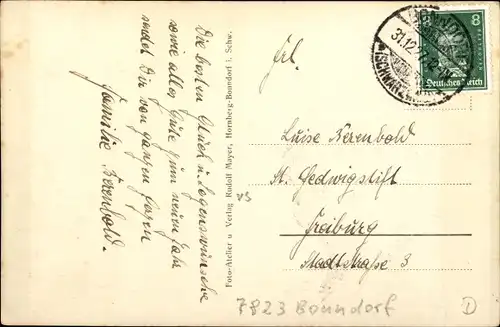 Die besten Glück u. Segenswünsche
sowie alles Gute zum neuen Jahr
sendet Dir von ganzem Herzen
Familie Berenbold.
Foto-Atelier u. Verlag Rudolf Mayer, Hornberg-Bonndorf i. Schw.
8
Deutsches Reich
BONNDORF
31.12.
(SCHWARZW.)
Frl.
Luise Berenbold
St. Hedwigstift
Freiburg
Stadtstraße 3
7823 Bonndorf
D